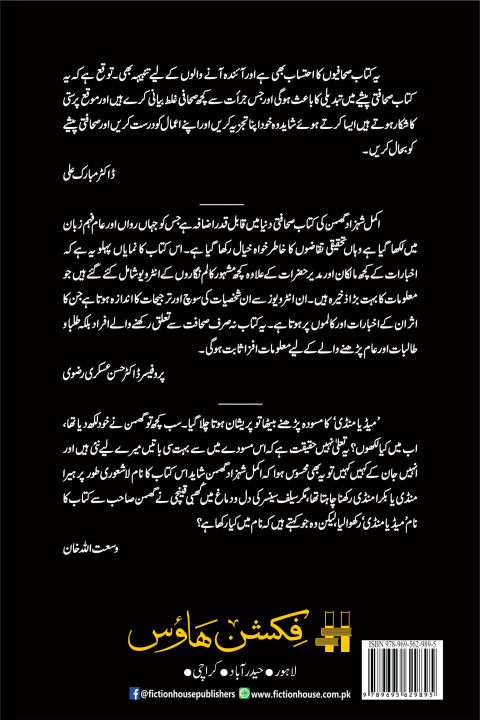 یہ کتاب صحافیوں کا احتساب بھی ہے اور آئندہ آنے والوں کے لیے تنبیہہ بھی۔ توقع ہے کہ یہ
کتاب صحافتی پیشے میں تبدیلی کا باعث ہوگی اور جس جرأت سے کچھ صحافی غلط بیانی کرتے ہیں اور موقع پرستی
کا شکار ہوتے ہیں ایسا کرتے ہوئے شاید وہ خود اپنا تجزیہ کریں اور اپنے اعمال کو درست کریں اور صحافتی پیشے
کو بحال کریں۔
ڈاکٹر مبارک علی
اکمل شہزاد گھمن کی کتاب صحافتی دنیا میں قابل قدر اضافہ ہے جس کو جہاں رواں اور عام فہم زبان
میں لکھا گیا ہے وہاں تحقیقی تقاضوں کا خاطر خواہ خیال رکھا گیا ہے۔ اس کتاب کا نمایاں پہلو یہ ہے کہ
اخبارات کے کچھ مالکان اور مدیر حضرات کے علاوہ کچھ مشہور کالم نگاروں کے انٹرویو شامل کئے گئے ہیں جو
معلومات کا بہت بڑا ذخیرہ ہیں۔ ان انٹرویوز سے ان شخصیات کی سوچ اور ترجیحات کا اندازہ ہوتا ہے جن کا
اثر ان کے اخبارات اور کالموں پر ہوتا ہے۔ یہ کتاب نہ صرف صحافت سے تعلق رکھنے والے افراد بلکہ طلبا و
طالبات اور عام پڑھنے والے کے لیے معلومات افزا ثابت ہوگی۔
پروفیسر ڈاکٹر حسن عسکری رضوی
’میڈیا منڈی‘ کا مسودہ پڑھنے بیٹھا تو پریشان ہوتا چلا گیا۔ سب کچھ تو گھمن نے خود لکھ دیا تھا،
اب میں کیا لکھوں؟ یہ تعلّی نہیں حقیقت ہے کہ اس مسودے میں سے بہت سی باتیں میرے لیے نئی ہیں اور
انہیں جان کے کہیں کہیں تو یہ بھی محسوس ہوا کہ اکمل شہزاد گھمن شاید اس کتاب کا نام لاشعوری طور پر ہیرا
منڈی یا بکرا منڈی رکھنا چاہتا تھا، مگر سیلف سینسر کی دل و دماغ میں گھسی قینچی نے گھمن صاحب سے کتاب کا
نام ’میڈیا منڈی‘ رکھوا لیا، لیکن وہ جو کہتے ہیں کہ نام میں کیا رکھا ہے؟
وسعت اللہ خان
فکشن ہاؤس
لاہور • حیدر آباد • کراچی •
@fictionhousepublishers www.fictionhouse.com.pk
ISBN 978-969-562-989-5
9789695629895